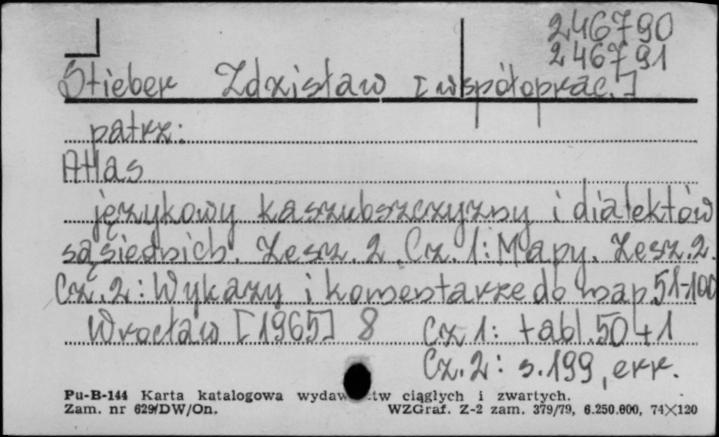 246790
246791
Stieber Zdzisław [współoprac.]
patrz:
Atlas
językowy kaszubszczyzny i dialektów
sąsiednich. Zesz. 2. Cz. 1: Mapy. Zesz. 2.
Cz. 2: Wykazy i komentarze do map 51-100
Wrocław [1965] 8 Cz 1: tabl. 50 + 1
Cz. 2: s. 199, err.
Pu-B-144 Karta katalogowa wydaw tw ciągłych i zwartych.
Zam. nr 629/DW/On. WZGraf. Z-2 zam. 379/79, 6.250.000, 74×120